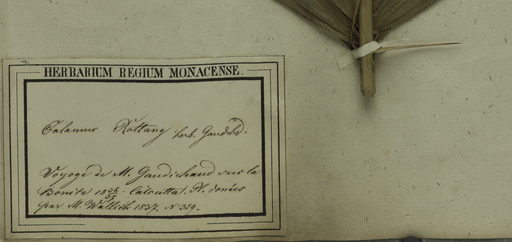 HERBARIUM REGIUM MONACENSE.
Calamus Rottang herb. Gaudichd.
Voyage de M. Gaudichaud sur la
Bonite 1836/37. Calcutta. Pl. données
par M. Wallich 1837. N 359.